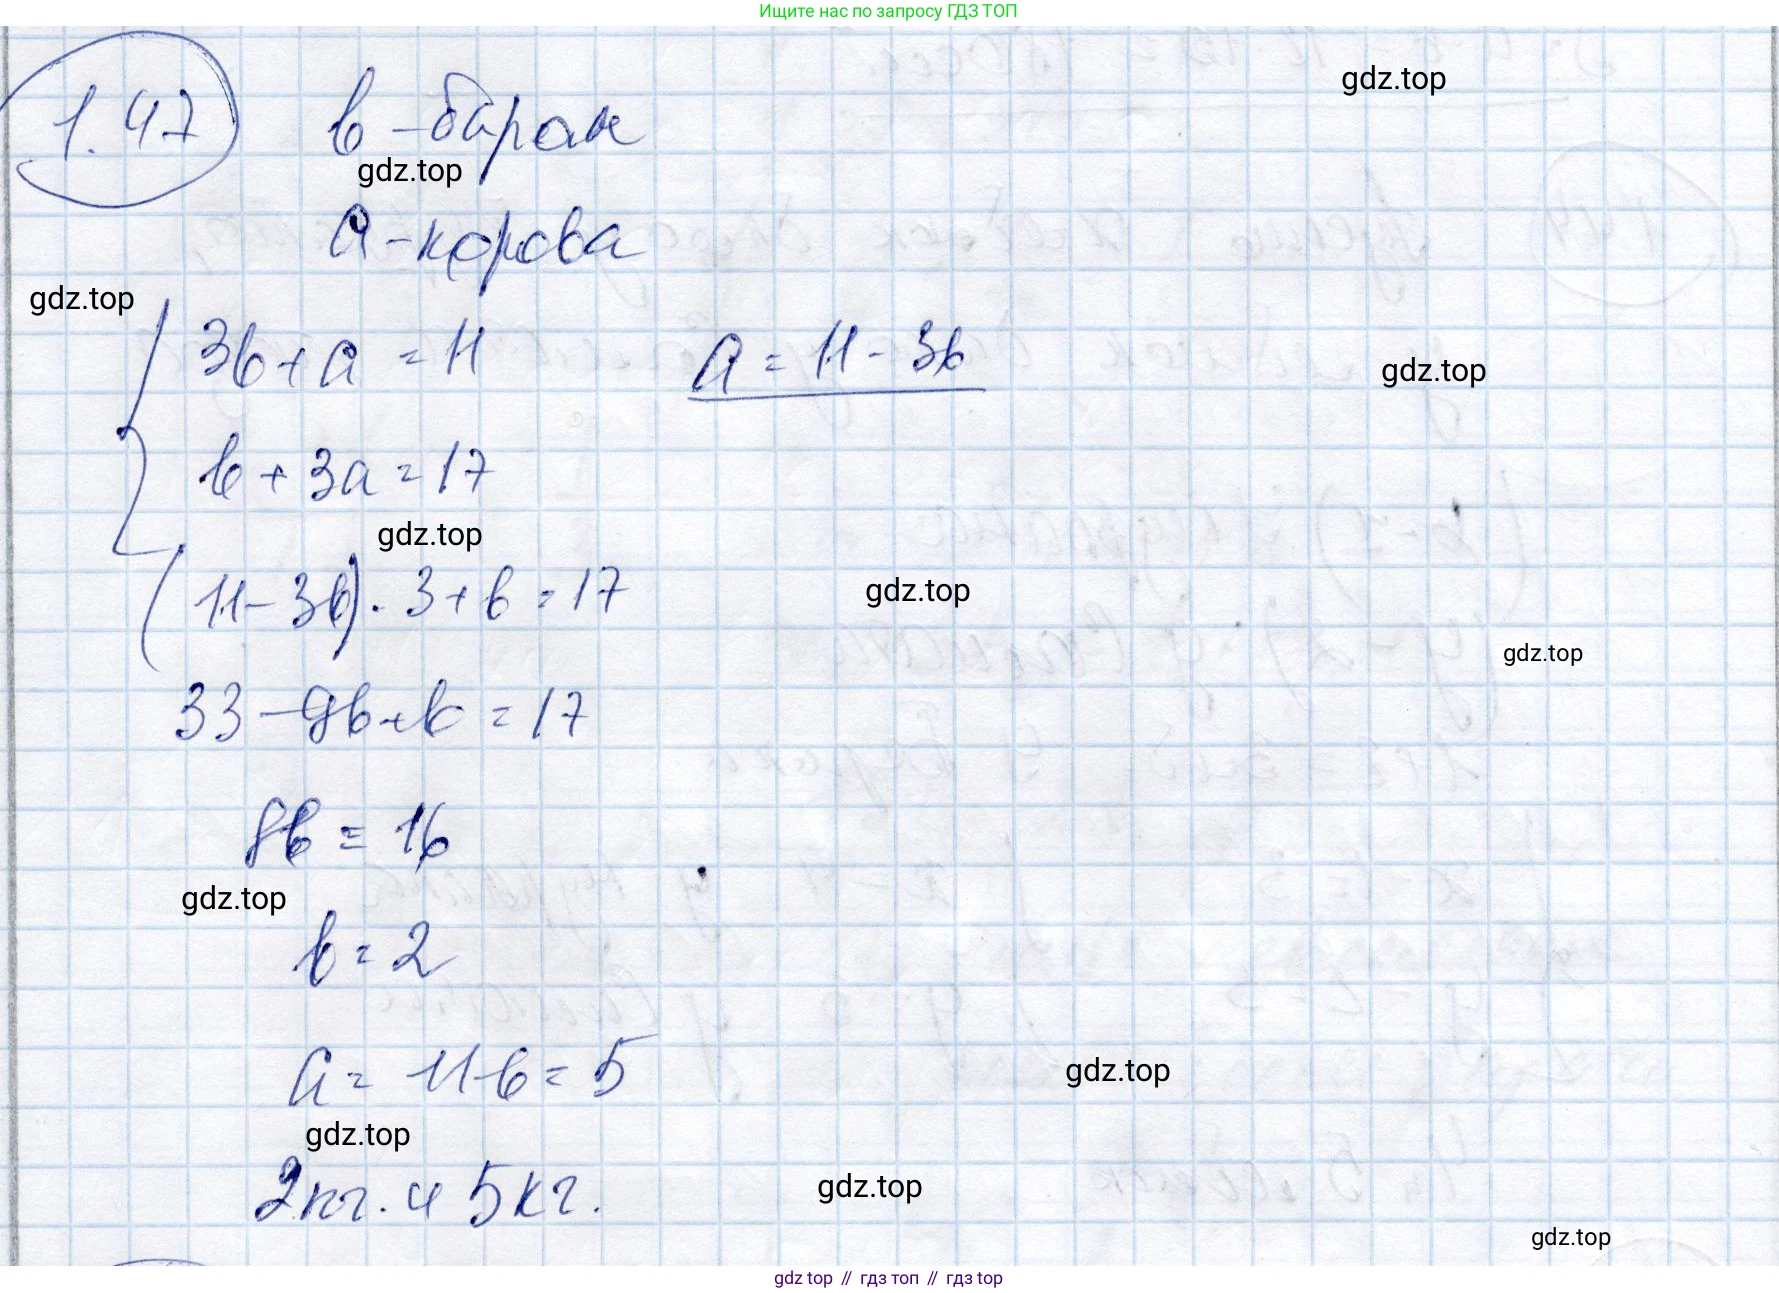 Ищите нас по запросу ГДЗ ТОП
1.47
в - баран
gdz.top
gdz.top
а - корова
gdz.top
3в + а = 11
а = 11 - 3в
gdz.top
в + 3а = 17
gdz.top
(11 - 3в) · 3 + в = 17
gdz.top
gdz.top
33 - 9в + в = 17
8в = 16
gdz.top
в = 2
а = 11 - 6 = 5
gdz.top
gdz.top
2 кг. и 5 кг.
gdz.top
gdz.top
gdz top // гдз топ // гдз top